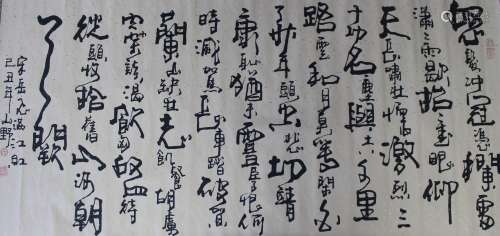 怒髮冲冠憑欄處
瀟瀟雨歇抬望眼仰
天長嘯壯懷激烈三
十功名塵與土八千里
路雲和月莫等閑白
了少年頭空悲切靖
康恥猶未雪臣子恨何
時滅駕長車踏破賀
蘭山缺壯志飢餐胡虜
肉笑談渴飲匈奴血待
從頭收拾舊山河朝
天闕
宋岳飛滿江紅
己丑年山野